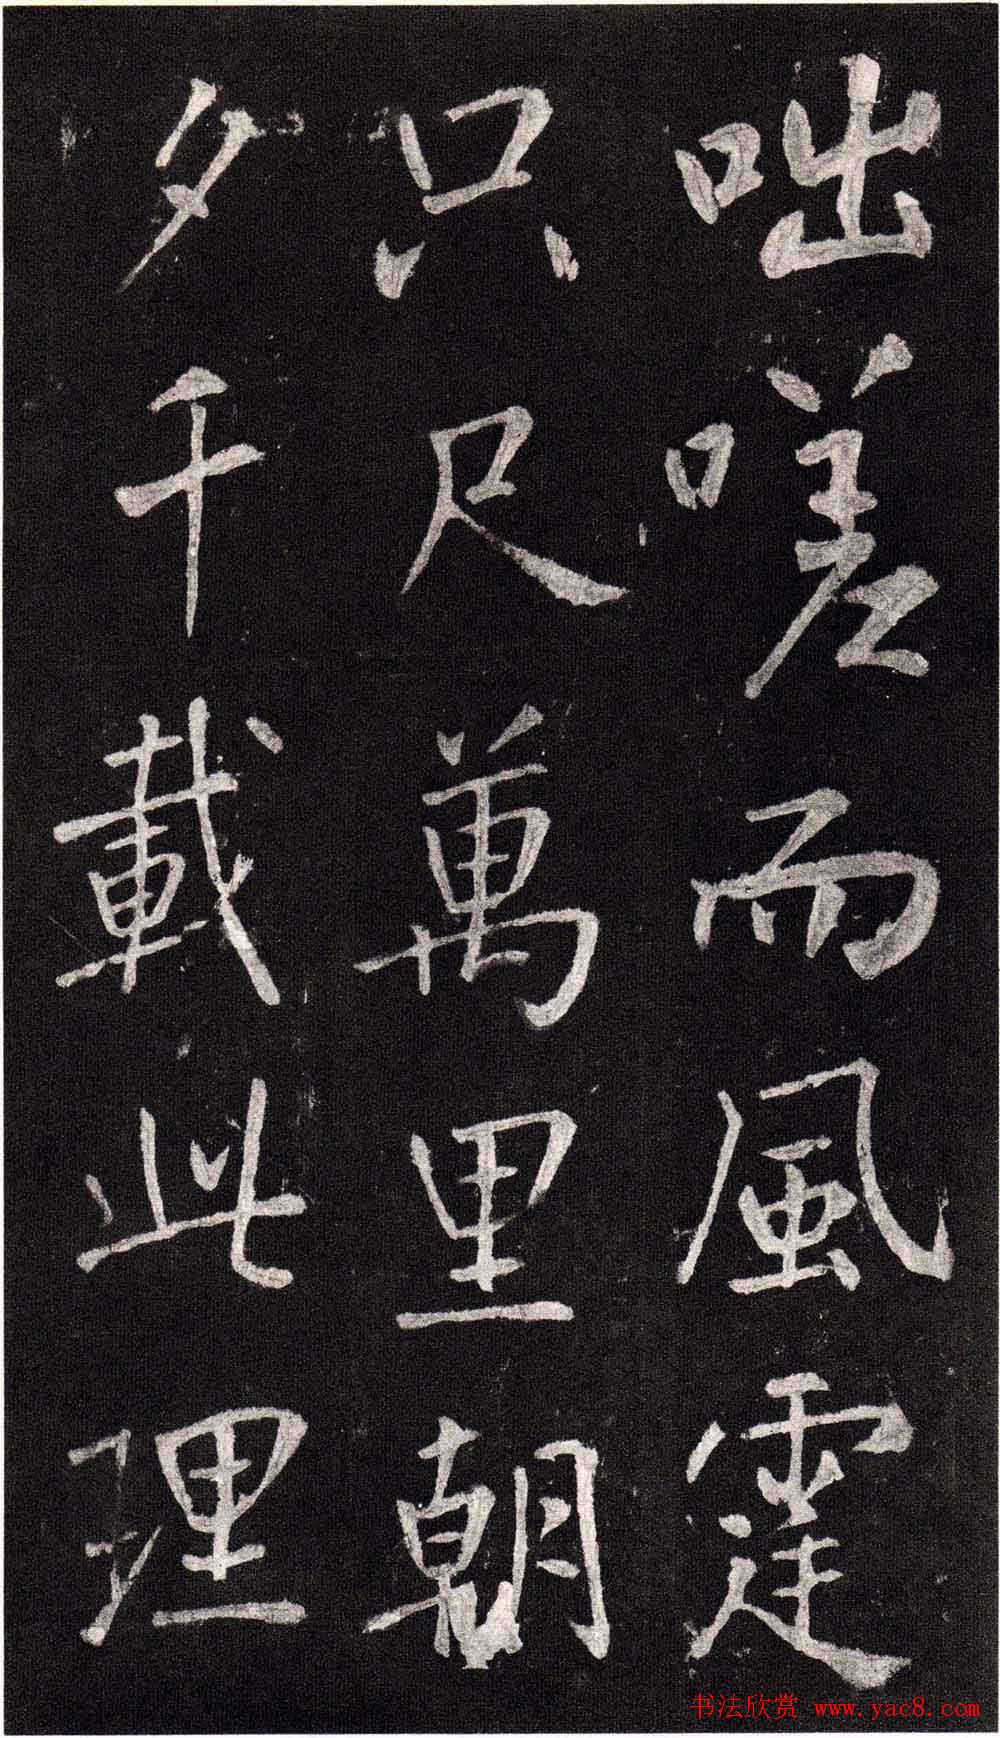 咄嗟而風霆
只尺萬里朝
夕千載此理
书法欣赏 www.yac8.com